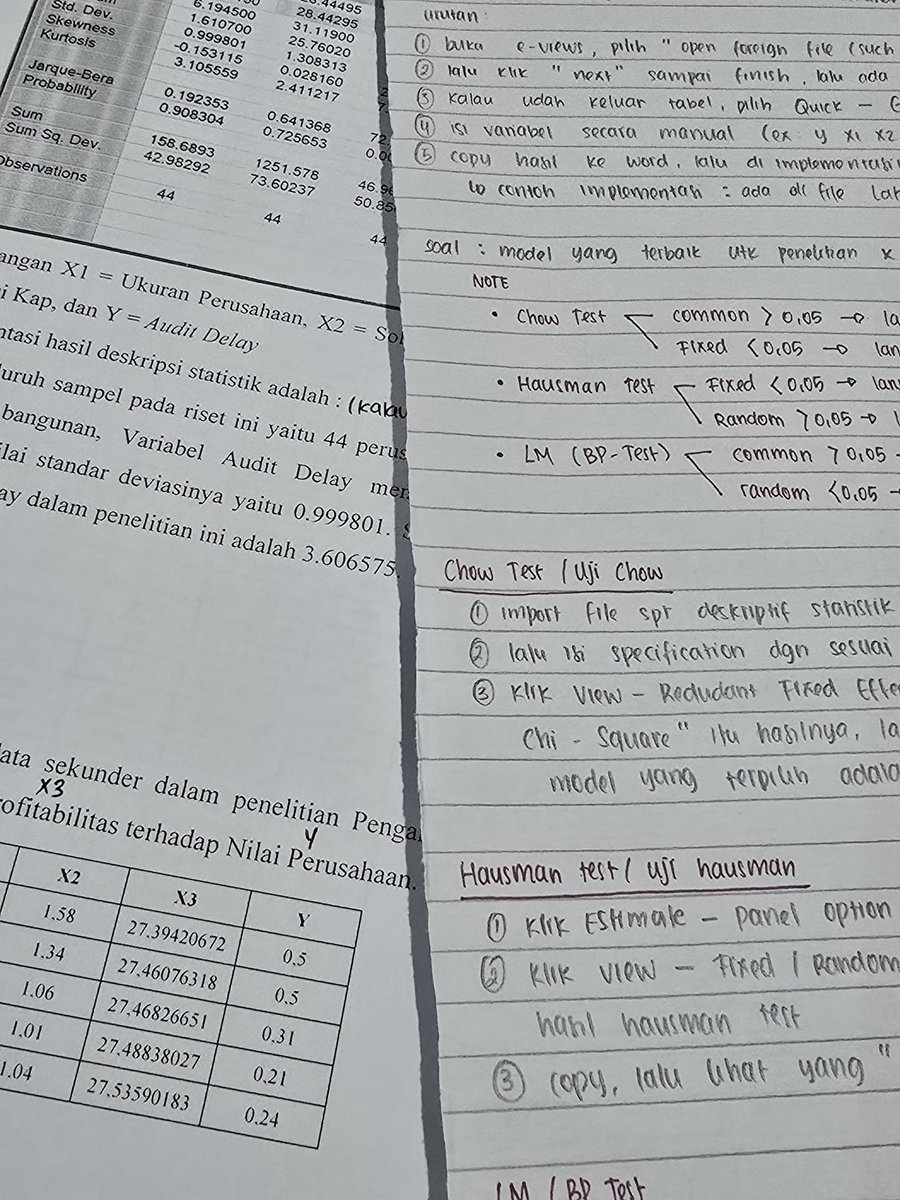 Std. Dev.
Skewness
Kurtosis
Jarque-Bera
Probability
Sum
Sum Sq. Dev.
Observations
6.194500
1.610700
0.999801
-0.153115
3.105559
0.192353
0.908304
158.6893
42.98292
44
28.44295
31.11900
25.76020
1.308313
0.028160
2.411217
0.641368
0.725653
1251.578
73.60237
44
72.
0.0
46.9
50.85
44
angan X1 = Ukuran Perusahaan, X2 = Sol
i Kap, dan Y = Audit Delay
ntasi hasil deskripsi statistik adalah : (kalau
luruh sampel pada riset ini yaitu 44 perus
bangunan, Variabel Audit Delay men
ilai standar deviasinya yaitu 0.999801. S
ay dalam penelitian ini adalah 3.606575.
ata sekunder dalam penelitian Penga
X3
ofitabilitas terhadap Nilai Perusahaan.
Y
X2 X3 Y
1.58 27.39420672 0.5
1.34 27.46076318 0.5
1.06 27.46826651 0.31
1.01 27.48838027 0.21
1.04 27.53590183 0.24
urutan :
① buka e-views, pilih "open foreign file (such
② lalu klik "next" sampai finish, lalu ada
③ kalau udah keluar tabel, pilih Quick -
④ isi variabel secara manual (ex: y x1 x2
⑤ copy hasil ke word, lalu di implementasi
↳ contoh implementasi : ada di file Lat
soal : model yang terbaik utk penelitian x
NOTE
• Chow Test common > 0,05 → la
Fixed < 0,05 → lan
• Hausman Test Fixed < 0,05 → lan
Random > 0,05 → l
• LM (BP-Test) common > 0,05 -
random < 0,05 -
Chow Test / Uji Chow
① import file spt deskriptif statistik
② lalu isi specification dgn sesuai
③ Klik View - Redudant Fixed Effe
Chi - Square" itu hasilnya, la
model yang terpilih adala
Hausman test / Uji hausman
① Klik Estimate - panel option
② Klik view - Fixed / Random
hasil hausman test
③ copy, lalu lihat yang "
LM / BP Test